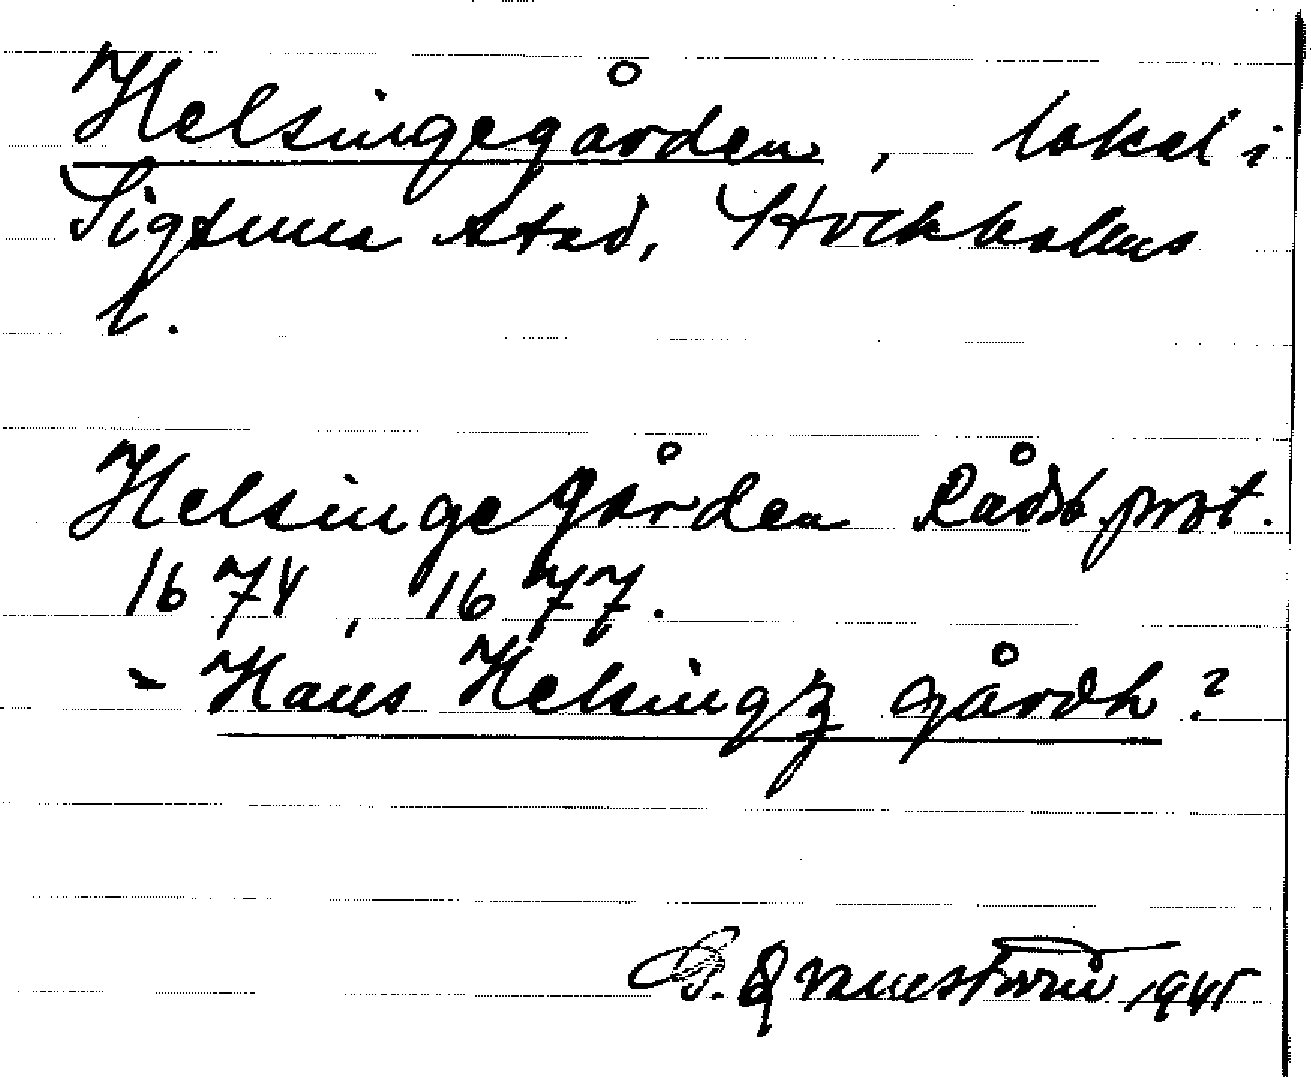 Helsingegården, lokal i
Sigtuna stad, Stockholms
l.
Helsingegården Rådst.prot.
1674, 1677.
= Hans Helsingz gårdh?
G. Qvarnström 1945